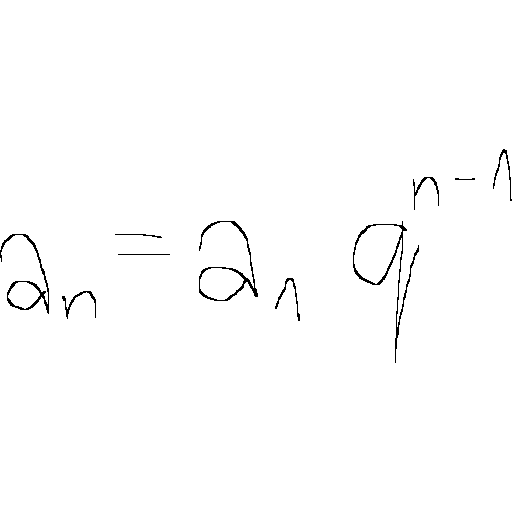 a_n = a_1 q^{n-1}